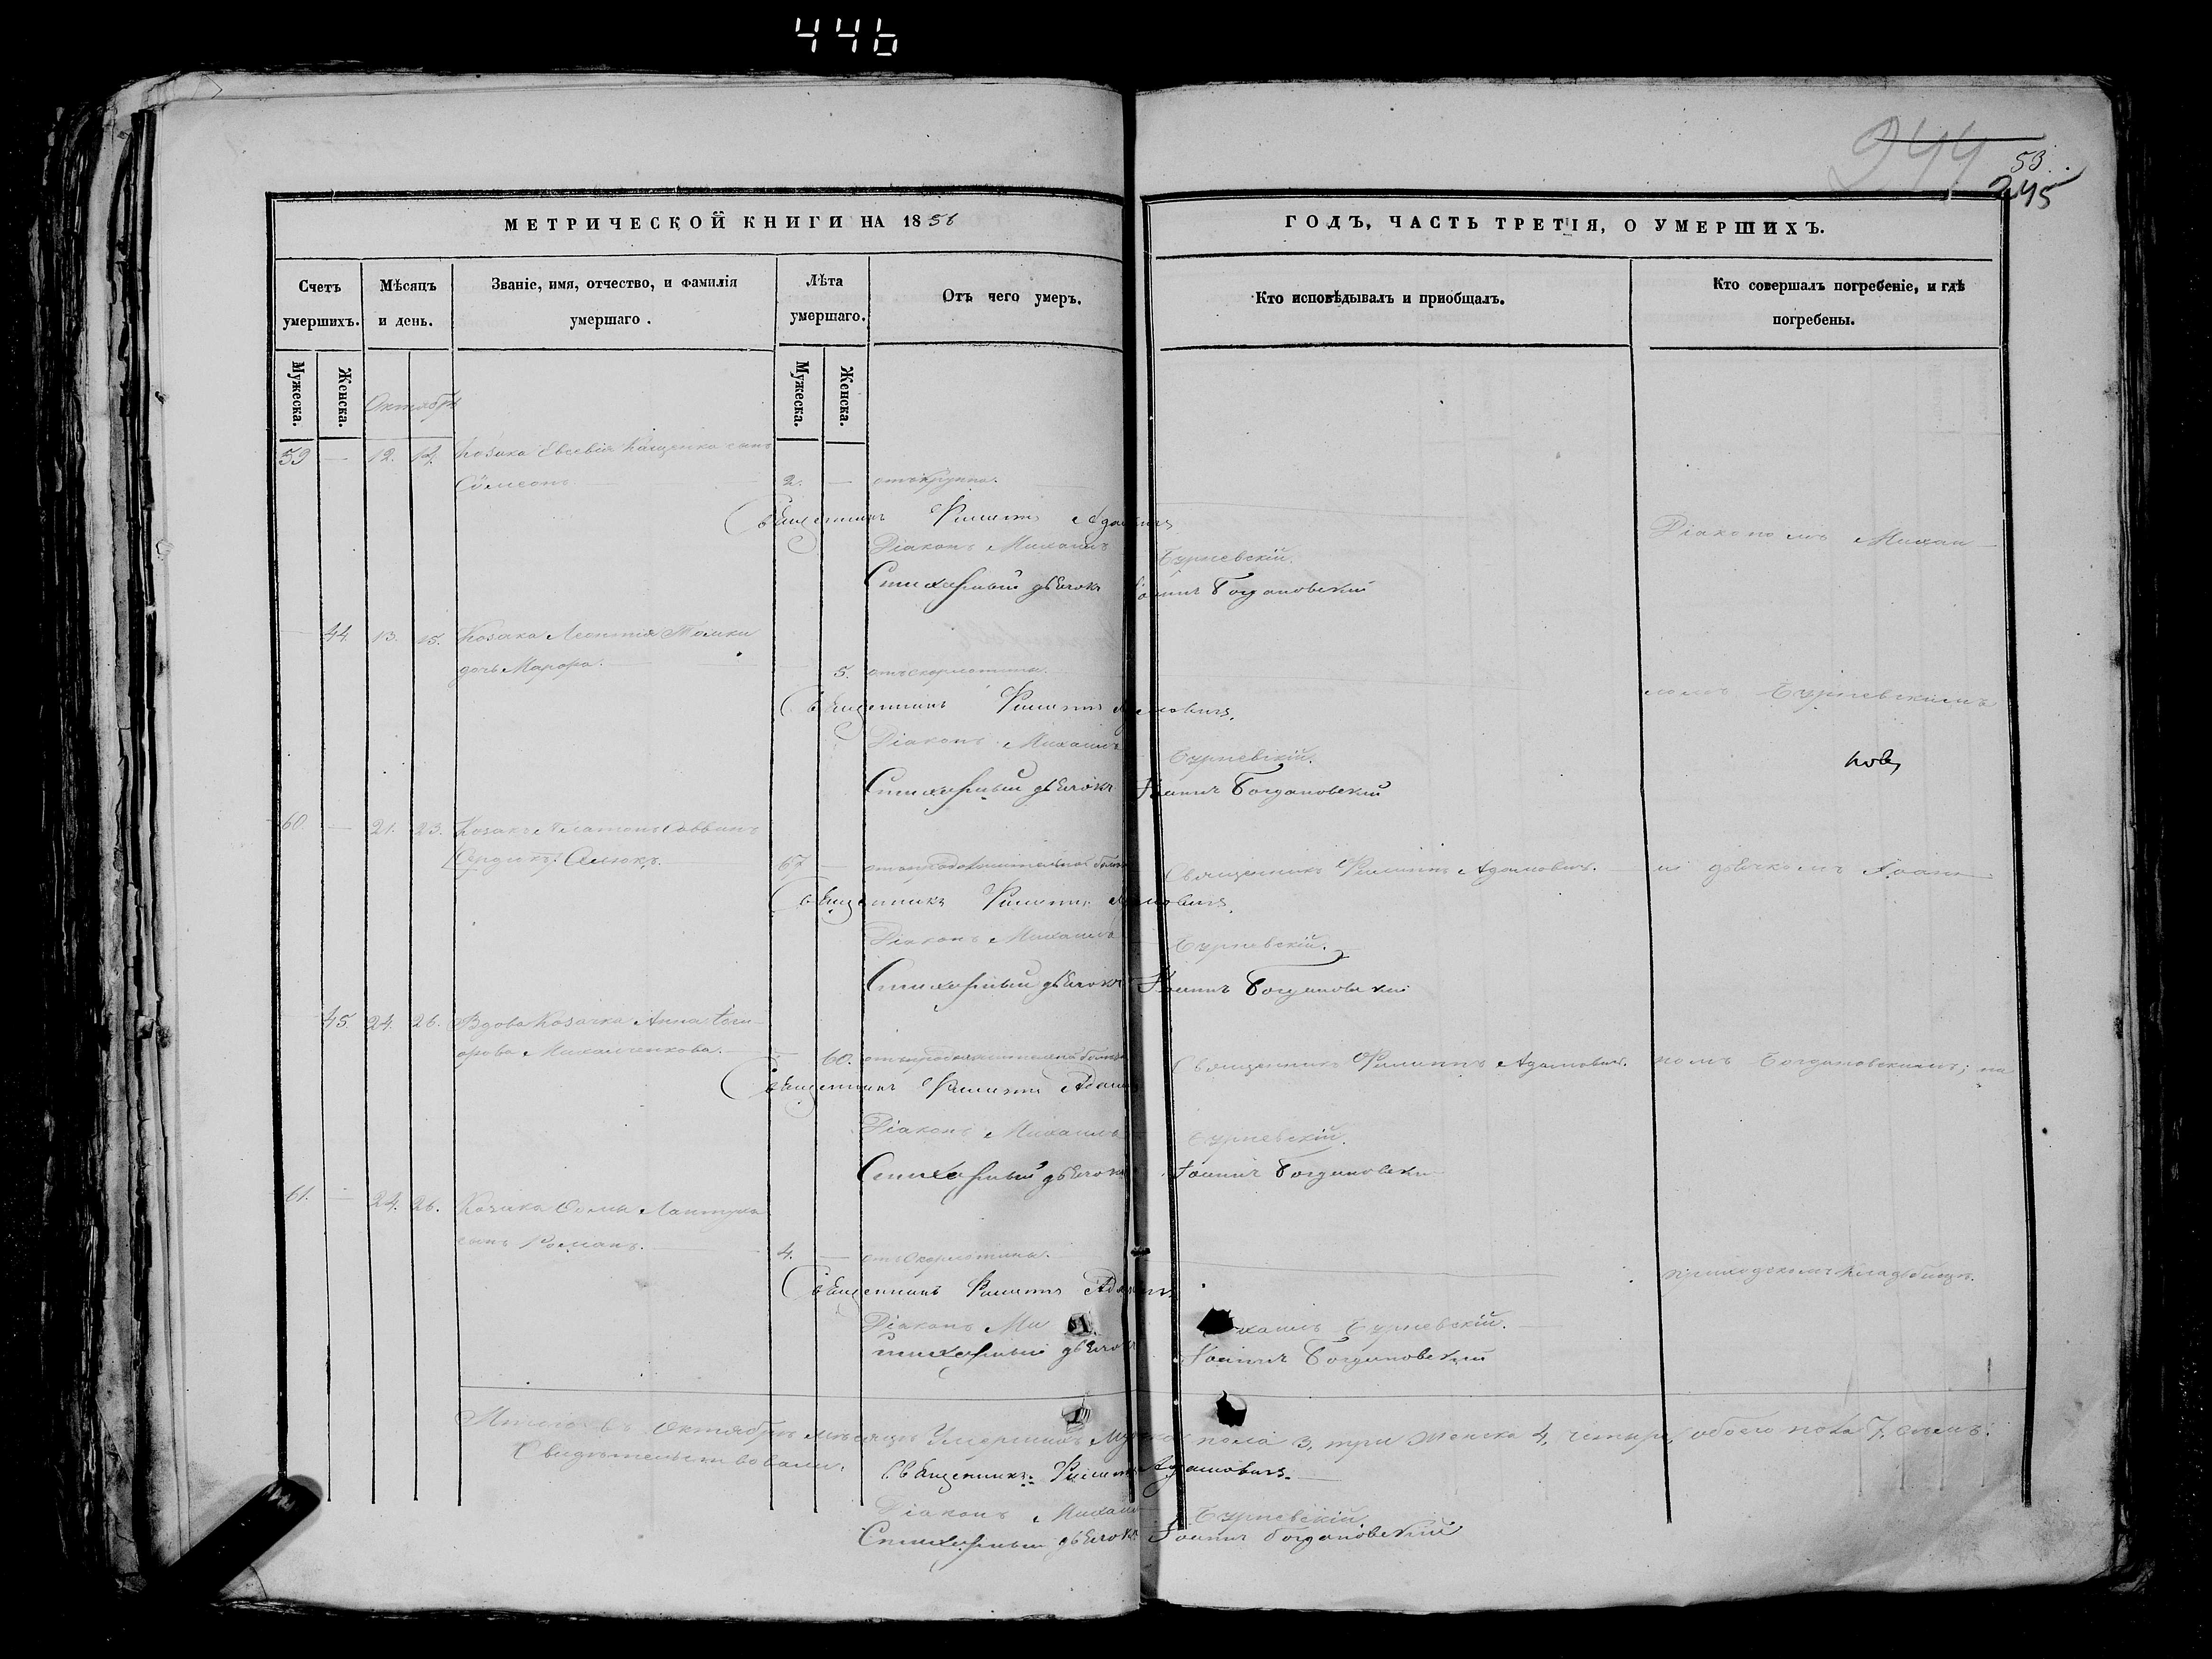 446
244
53.
245
МЕТРИЧЕСКОЙ КНИГИ НА 1856
ГОДЪ, ЧАСТЬ ТРЕТІЯ, О УМЕРШИХЪ.
Счетъ умершихъ.
Мѣсяцъ и день.
Званіе, имя, отчество, и фамилія
умершаго.
Лѣта умершаго.
Отъ чего умеръ.
Кто исповѣдывалъ и приобщалъ.
Кто совершалъ погребеніе, и гдѣ
погребены.
Мужеска.
Женска.
Октябрь
Мужеска.
Женска.
59 — 12. 14. Козака Евсевія Кащенка сынъ
Сѵмеонъ 2. — отъ крупа.
Священникъ Филиппъ Адамовичъ
Діаконъ Михаилъ Бурневскій.
Діакономъ Михаи-
Стихарный дьячокъ Іоаннъ Богдановскій
— 44 13. 15. Козака Леонтія
дочь Марфа. 5. отъ скорлотины.
Священникъ Филиппъ Адамовичъ.
ломъ Бурневскимъ
Діаконъ Михаилъ Бурневскій.
Стихарный дьячокъ Іоаннъ Богдановскій
60 — 21. 23. Козакъ Платонъ Саввинъ
67 — отъ продолжительной болѣз Священникъ Филиппъ Адамовичъ. и дьячкомъ Іоан-
Священникъ Филиппъ Адамовичъ.
Діаконъ Михаилъ Бурневскій.
Стихарный дьячокъ Іоаннъ Богдановскій
45 24. 26. Вдова Козачка Анна
Михайченкова. 60. отъ продолжительной болѣз Священникъ Филиппъ Адамовичъ. номъ Богдановскимъ; на
Священникъ Филиппъ Адамовичъ
Діаконъ Михаилъ Бурневскій.
Стихарный дьячокъ Іоаннъ Богдановскій
61. — 24. 26. Козака Ѳомы Лантуха
сынъ Романъ. 4. — отъ скорлотины.
приходскомъ кладбищѣ.
Священникъ Филиппъ Адамовичъ
Діаконъ Михаилъ Бурневскій.
Стихарный дьячокъ Іоаннъ Богдановскій
Итого въ Октябрѣ мѣсяцѣ умершихъ Мужска пола 3, три Женска 4, четыре, обоего пола 7, семь.
Свидѣтельствовали.
Священникъ Филиппъ Адамовичъ.
Діаконъ Михаилъ Бурневскій
Стихарный дьячокъ Іоаннъ Богдановскій